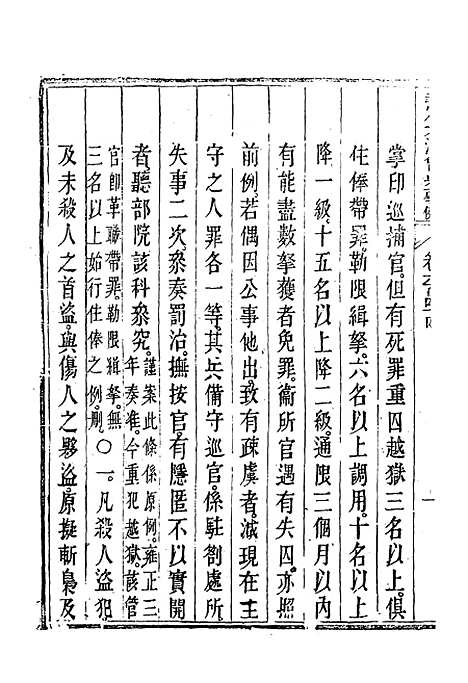 掌印巡捕官。但有死罪重囚越獄三名以上。俱
住俸帶罪。勒限緝拏。六名以上調用。十名以上
降一級。十五名以上降二級。通限三個月以內
有能盡數拏獲者免罪。衞所官遇有失囚。亦照
前例。若偶因公事他出。致有疎虞者。減現在主
守之人罪各一等。其兵備守巡官。係駐劄處所。
失事二次。叅奏罰治。撫按官。有隱匿不以實開
者。聽部院該科叅究。謹案此條係原例。雍正三年奏准。今重犯越獄。該管
官卽革職帶罪。勒限緝拏。無三名以上始行住俸之例。刪。〇一。凡殺人盜犯
及未殺人之首盜。與傷人之夥盜。原擬斬梟及